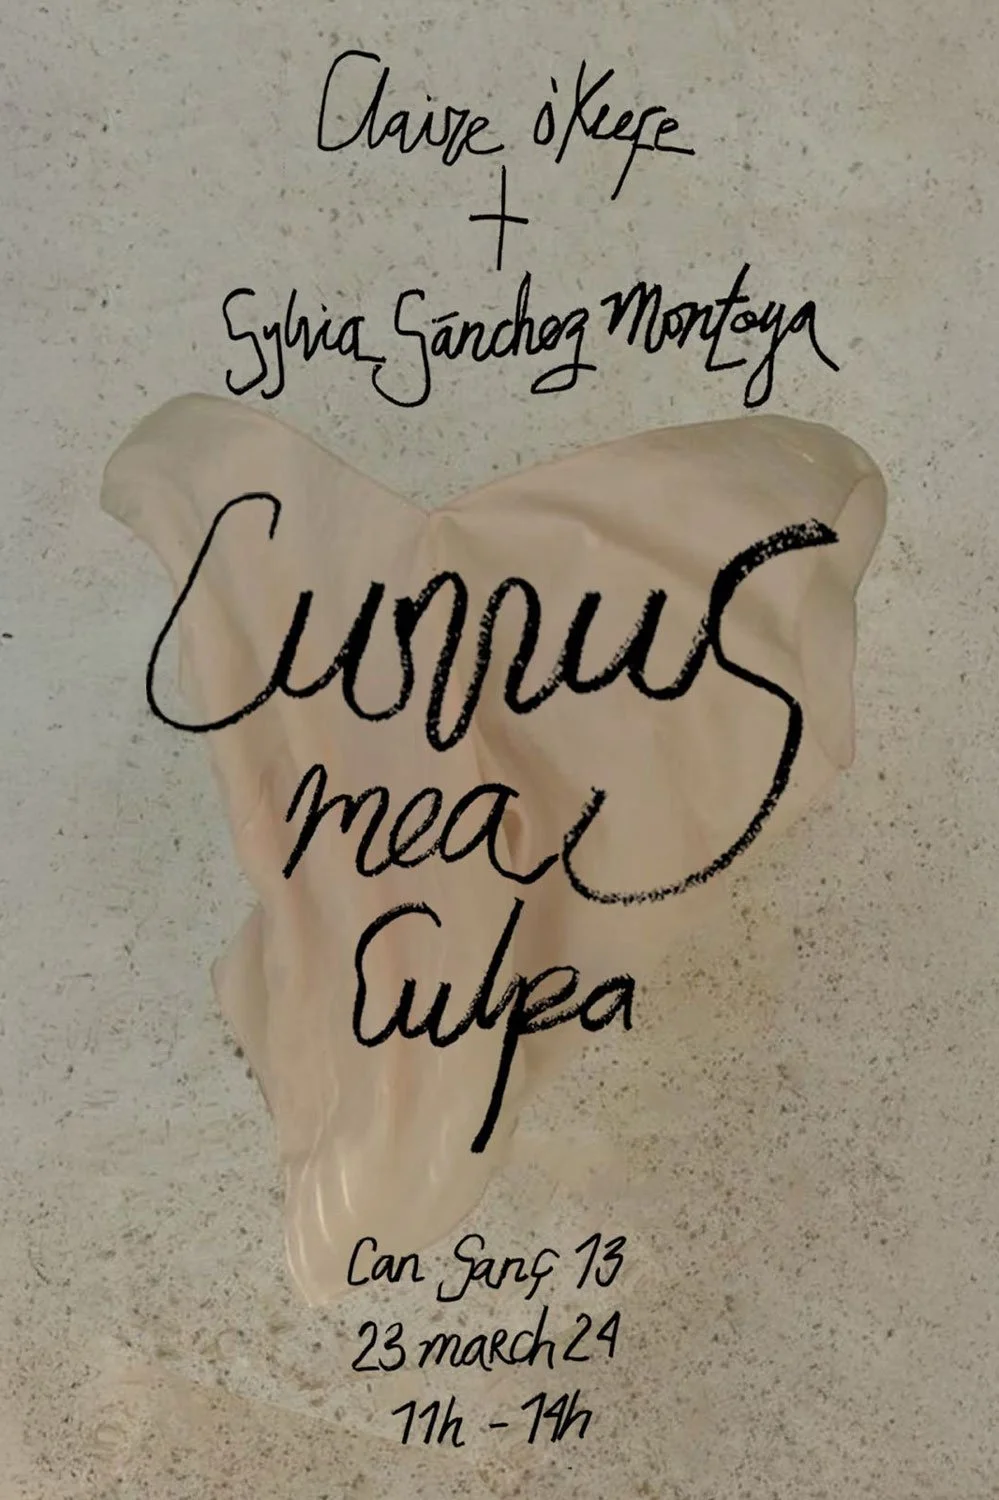 Claire o'Keefe
+
Sylvia Sánchez Montoya
Cunnus
mea
Culpa
Can Sanç 13
23 march 24
11h - 14h